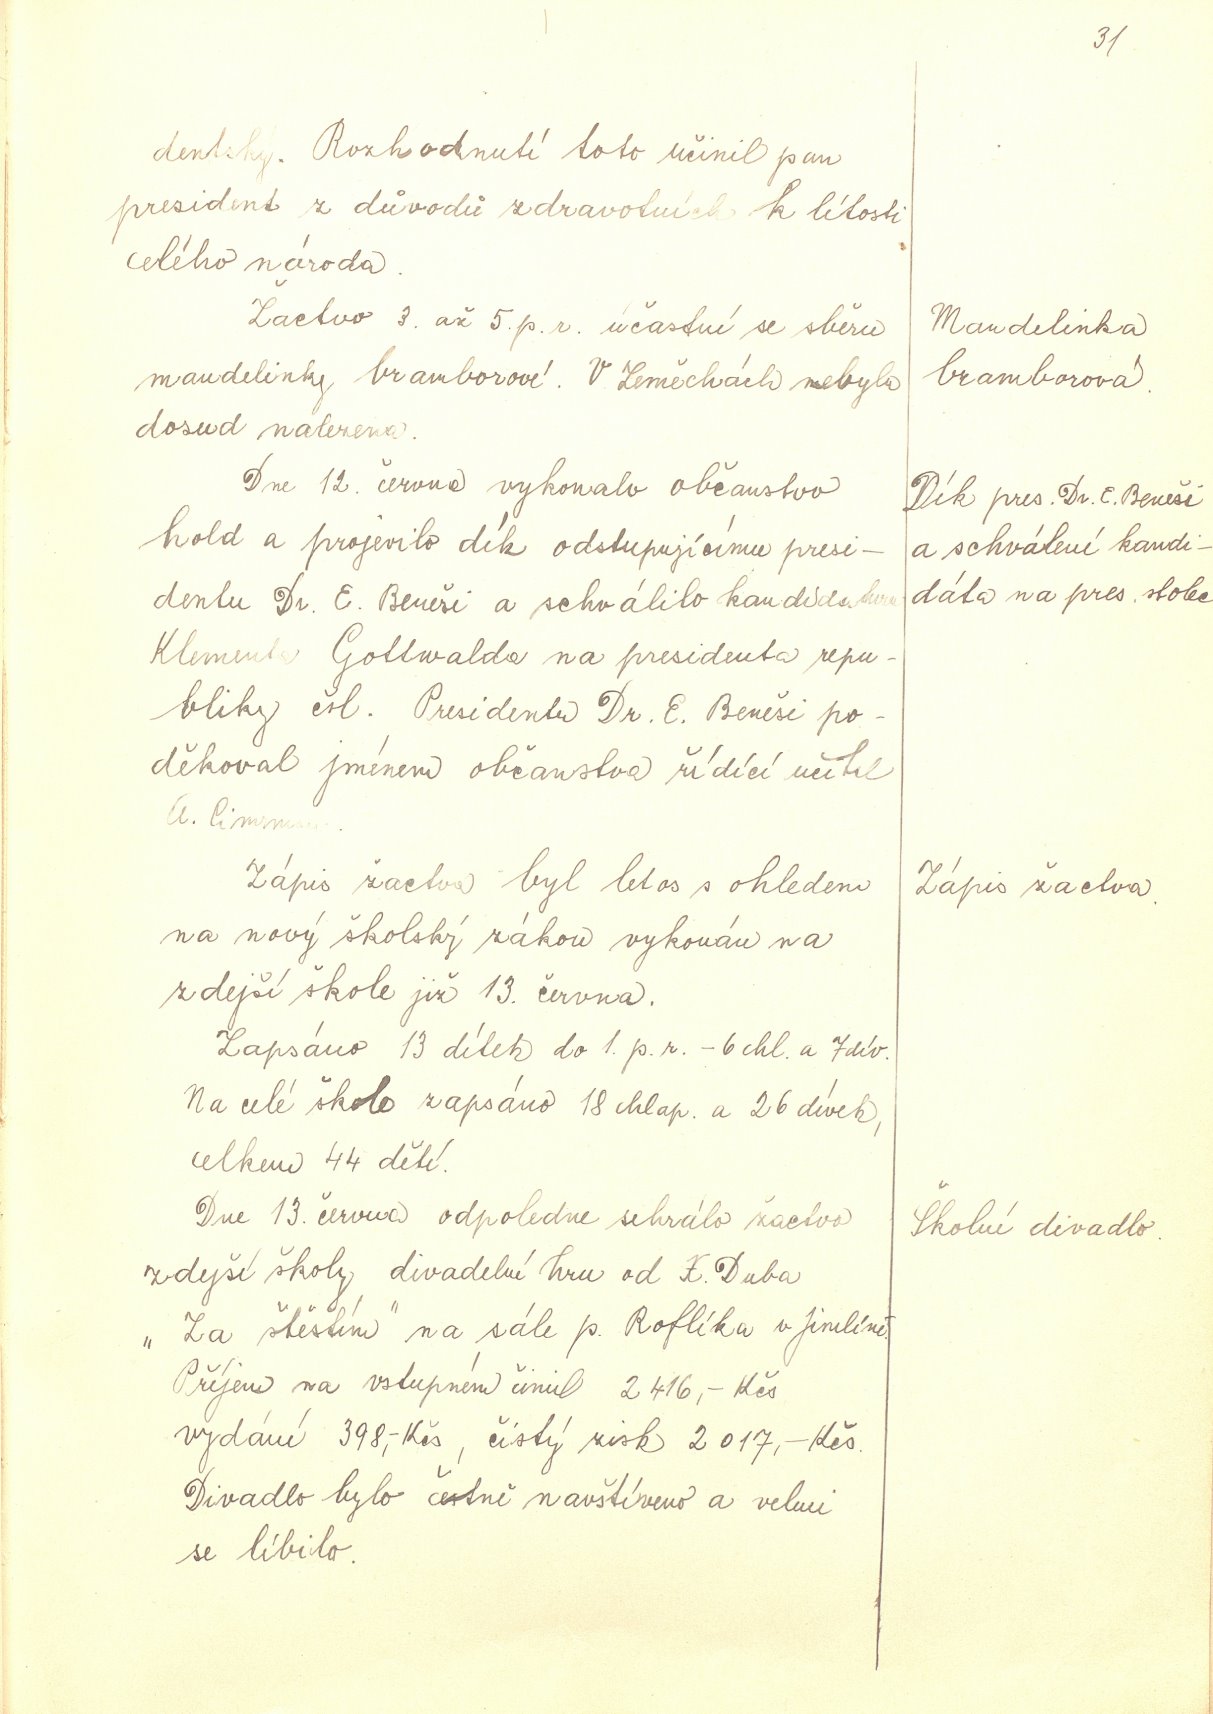 31
dentský. Rozhodnutí toto učinil pan
president z důvodů zdravotních k lítosti
celého národa.
Žactvo 3. až 5. p. r. účastní se sběru
mandelinky bramborové. V Zeměchách nebyla
dosud nalezena.
Mandelinka
bramborová.
Dne 12. června vykonalo občanstvo
hold a projevilo dík odstupujícímu presi-
dentu Dr. E. Beneši a schválilo kandidaturu
Klementa Gottwalda na presidenta repu-
bliky čsl. Presidentu Dr. E. Beneši po-
děkoval jménem občanstva řídící učitel
A.
Dík pres. Dr. E. Beneši
a schválení kandi-
dáta na pres. stolec
Zápis žactva byl letos s ohledem
na nový školský zákon vykonán na
zdejší škole již 13. června.
Zápis žactva.
Zapsáno 13 dítek do 1. p. r. - 6 chl. a 7 dív.
Na celé škole zapsáno 18 chlap. a 26 dívek,
celkem 44 dětí.
Dne 13. června odpoledne sehrálo žactvo
zdejší školy divadelní hru od X. Duba
„Za štěstím" na sále p. Roflíka v Jimlíně.
Příjem na vstupném činil 2 416,- Kčs
vydání 398,- Kčs, čistý zisk 2 017,- Kčs.
Divadlo bylo četně navštíveno a velmi
se líbilo.
Školní divadlo.